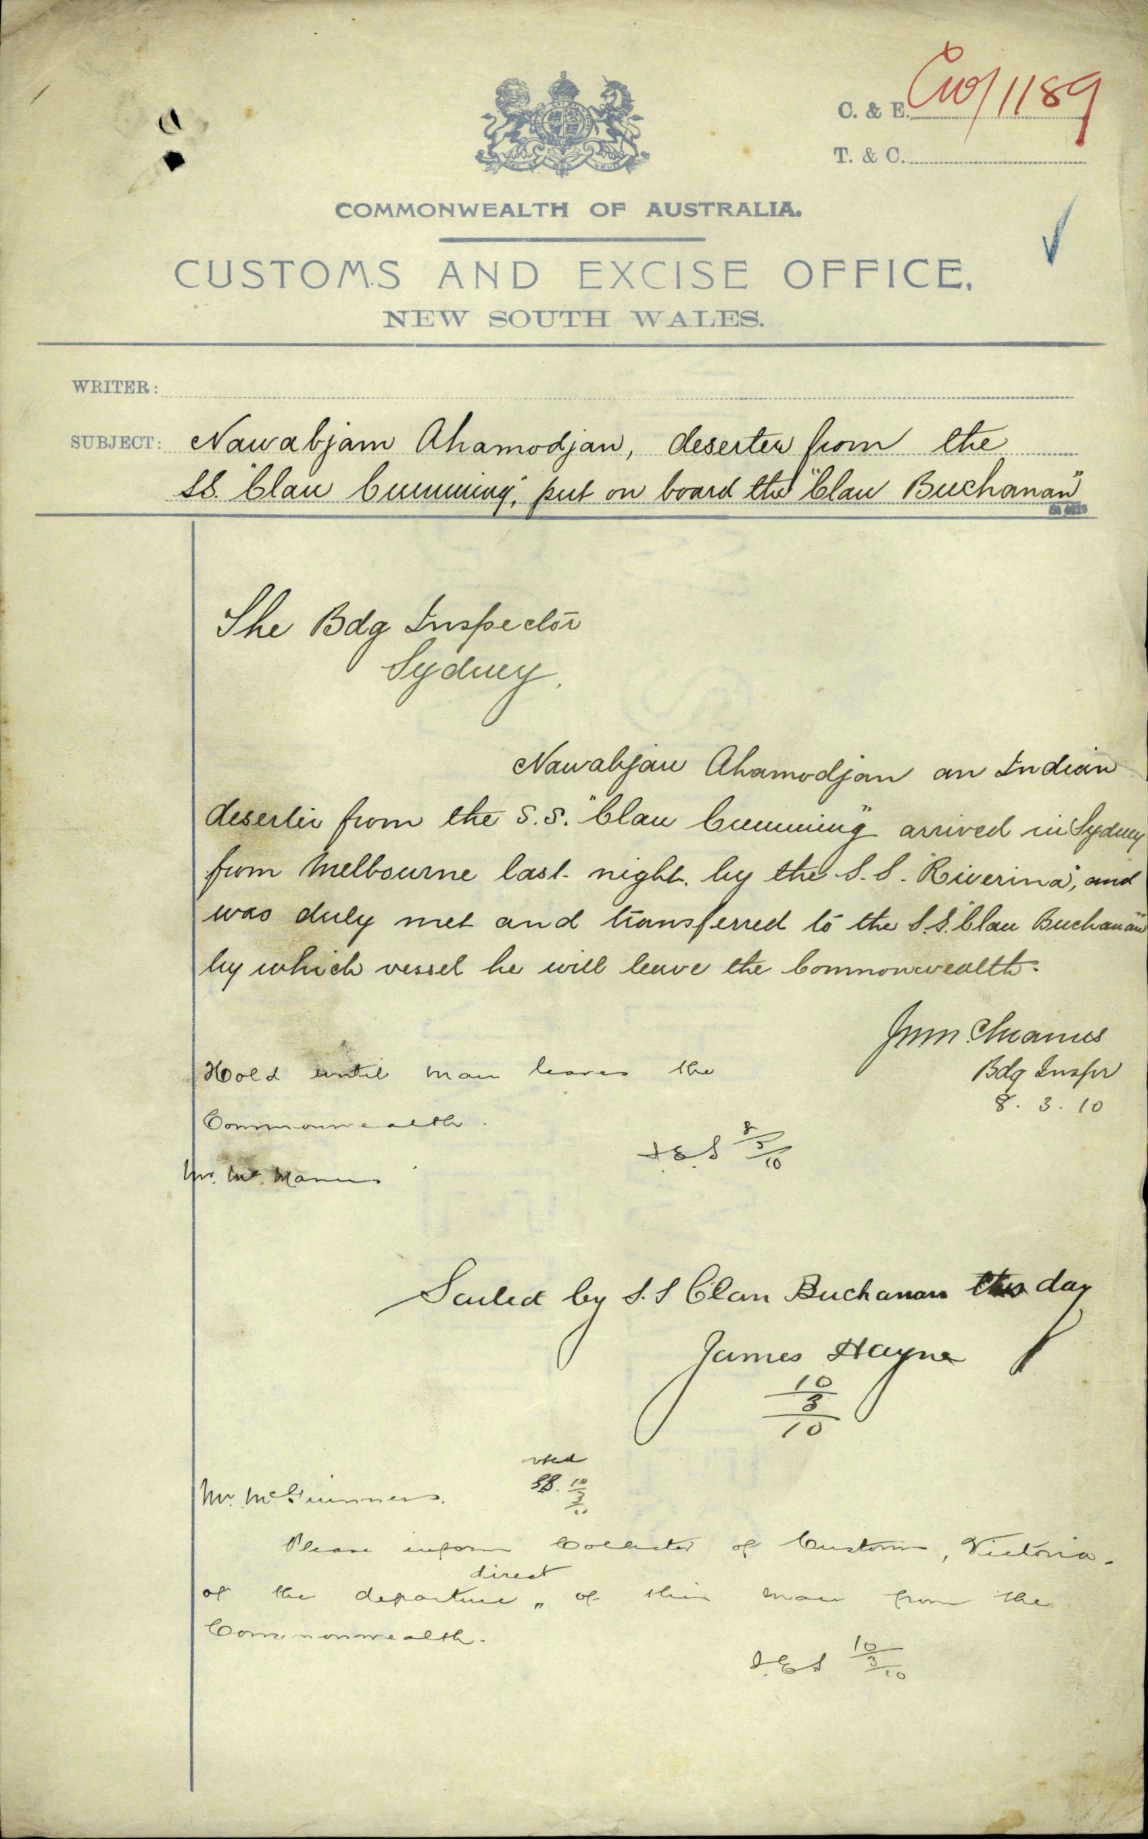 C. & E. C10/1189
T. & C.
COMMONWEALTH OF AUSTRALIA.
CUSTOMS AND EXCISE OFFICE,
NEW SOUTH WALES.
WRITER:
SUBJECT: Nawabjam Ahamodjan, deserter from the
SS. "Clan Cumming", put on board the "Clan Buchanan"
The Bdg Inspector
Sydney.
Nawabjan Ahamodjan an Indian
deserter from the S.S. "Clan Cumming" arrived in Sydney
from Melbourne last night by the S.S. "Riverina", and
was duly met and transferred to the S.S. "Clan Buchanan"
by which vessel he will leave the Commonwealth.
Bdg Inspr
8. 3. 10
Hold until man leaves the
Commonwealth.
8/3/10
Mr. McManus
Sailed by S.S Clan Buchanan this day
James Hayne
10/3/10
10/3/10
Mr. McGuinness.
Please inform Collector of Customs, Victoria.
direct
of the departure " of this man from the
Commonwealth.
10/3/10